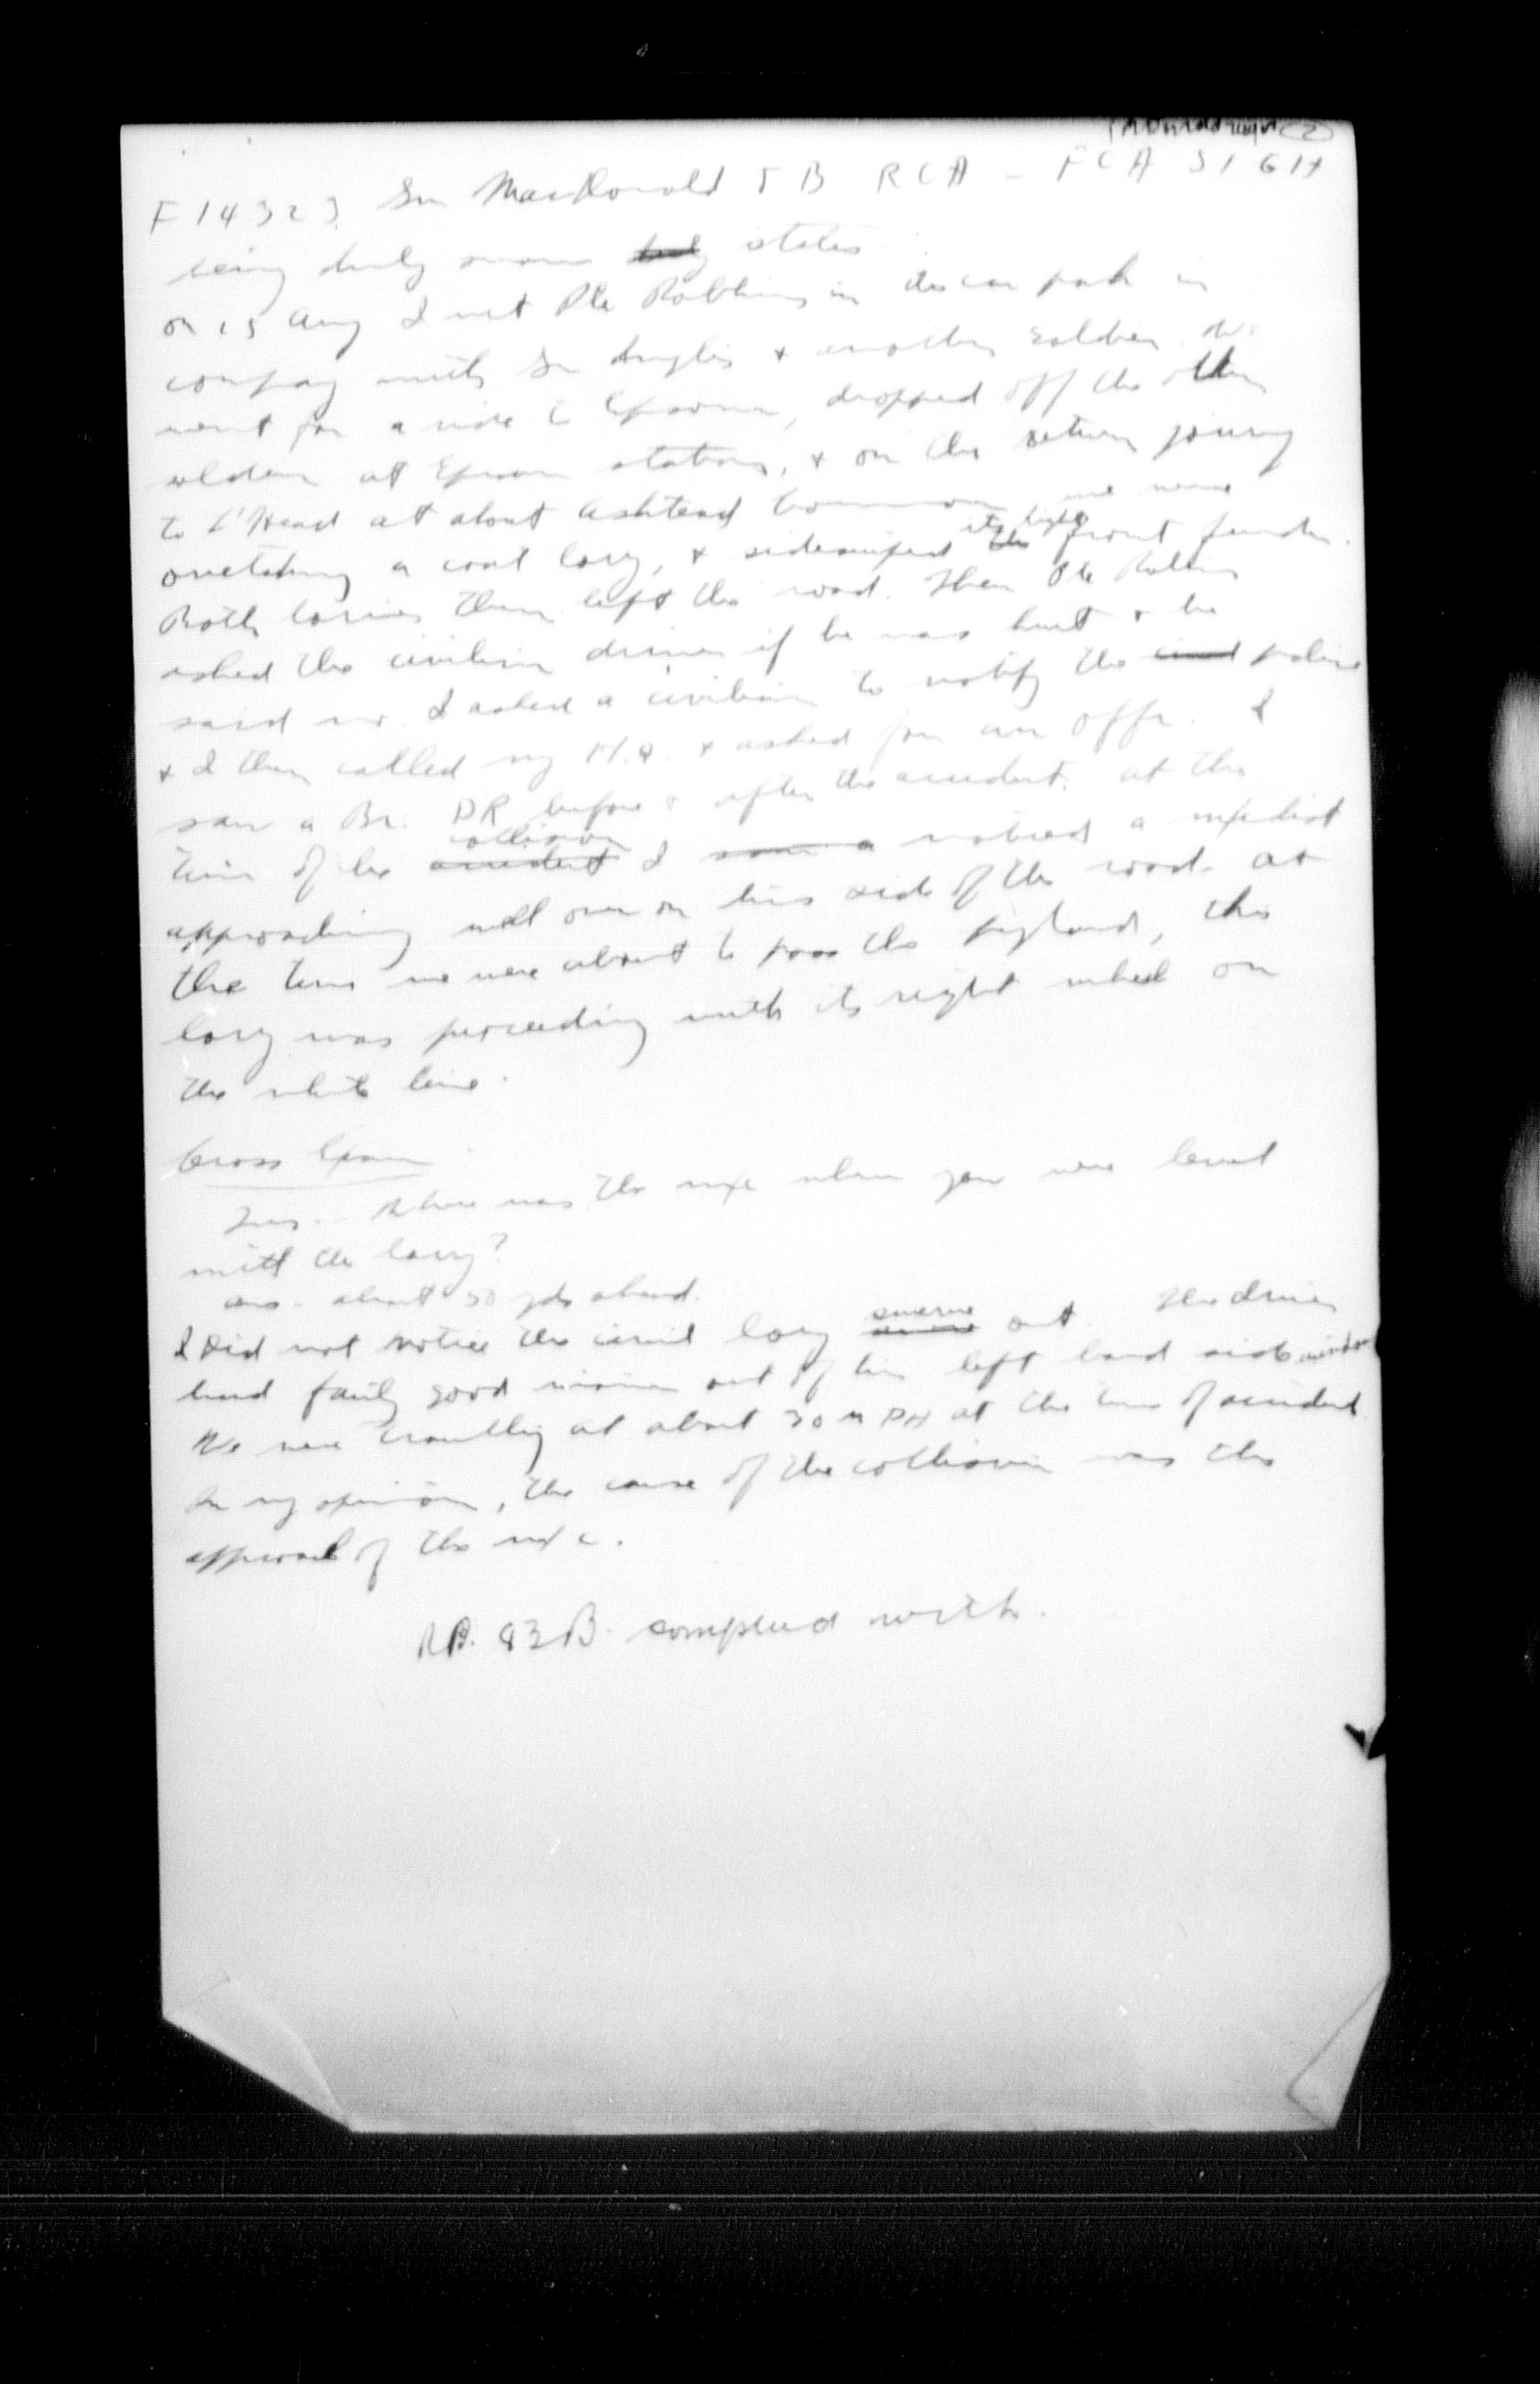 F 14323 Gnr MacDonald J B RCA - FCA SIGH
being duly sworn states
on 15 Aug I met Pte Robbins in the car park in
company with Gnr Inglis & another soldier. We
went for a ride to Epsom, dropped off the other
soldier at Epsom station, & on the return journey
to L'Head at about Ashtead Common we were
overtaking a coal lorry, & sideswiped the its right front fender.
Both lorries then left the road. Then Pte Robbins
asked the civilian driver if he was hurt & he
said no. I asked a civilian to notify the civil police
& I then called my H.Q. & asked for an offr. I
saw a Br. DR before & after the accident. at the
time of the accident collision I saw a noticed a m/cyclist
approaching well over on his side of the road. At
the time we were about to pass the , the
lorry was proceeding with its right wheel on
the white line.
Cross Exam
Ques - Where was the m/c when you were level
with the lorry?
ans - about 50 yds ahead.
I did not notice the civil lorry swerve out. The driver
had fairly good vision out of his left hand side window
We were travelling at about 30 MPH at the time of accident.
In my opinion, the cause of the collision was the
approach of the m/c.
RP. 83B. complied with.